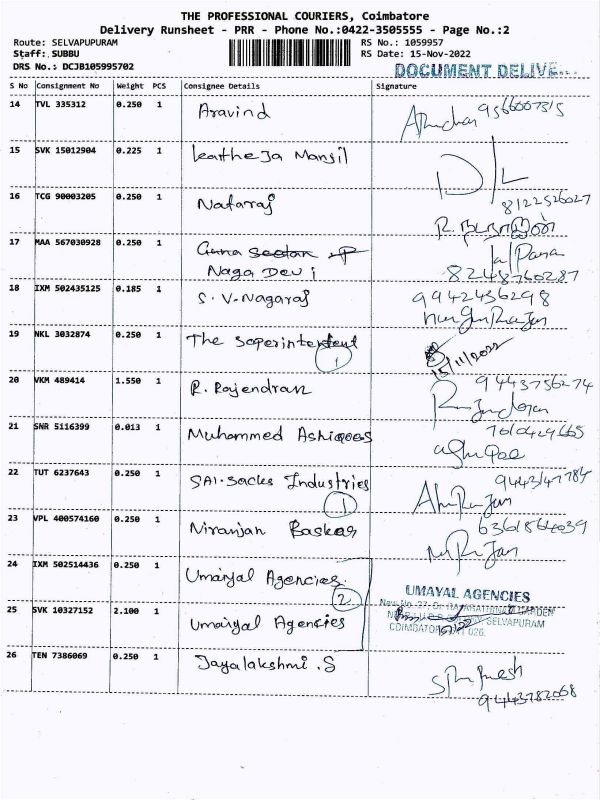 THE PROFESSIONAL COURIERS, Coimbatore
Delivery Runsheet - PRR - Phone No.:0422-3505555 - Page No.:2
Route: SELVAPUPURAM RS No.: 1059957
Staff: SUBBU RS Date: 15-Nov-2022
DRS No.: DCJB105995702 DOCUMENT DELIVE
S No Consignment No Weight PCS Consignee Details Signature
14 TVL 335312 0.250 1 Aravind 9566007315
15 SVK 15012904 0.225 1 Mansil
16 TCG 90003205 0.250 1 Nataraj 8122526027
17 MAA 567030928 0.250 1
Naga Devi 8248760287
18 IXM 502435125 0.185 1 S. V. Nagaraj 9942436298
19 NKL 3032874 0.250 1 The Soperintendent
1 15/11/2022
20 VKM 489414 1.550 1 R. Rajendran 9443756274
21 SNR 5116399 0.013 1 Muhammed Ashiqoes 7010429665
22 TUT 6237643 0.250 1 SAI. Sacks Industries
1
23 VPL 400574160 0.250 1 Niranjan Baskar
24 IXM 502514436 0.250 1 Umaiyal Agencies
2 UMAYAL AGENCIES
25 SVK 10327152 2.100 1 Umaiyal Agencies SELVAPURAM
26 TEN 7386069 0.250 1 Jayalakshmi. S
9443782068